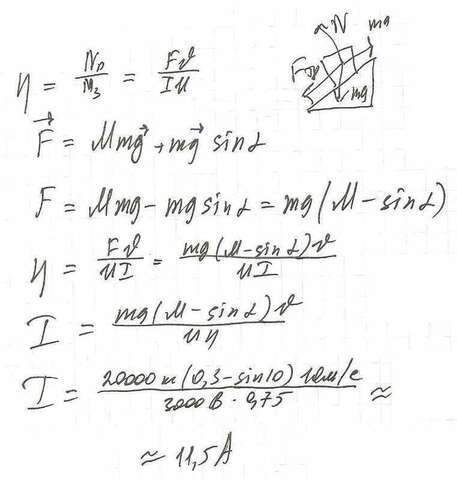 N mg
Fтр
mg
η = Nп/Nз = Fv/IU
F⃗ = μmg⃗ + mg⃗ sinα
F = μmg - mg sinα = mg(μ - sinα)
η = Fv/UI = mg(μ - sinα)v/UI
I = mg(μ - sinα)v/Uη
I = 20000 н(0,3 - sin10) 10м/с / 3000 В · 0,75 ≈
≈ 11,5 A